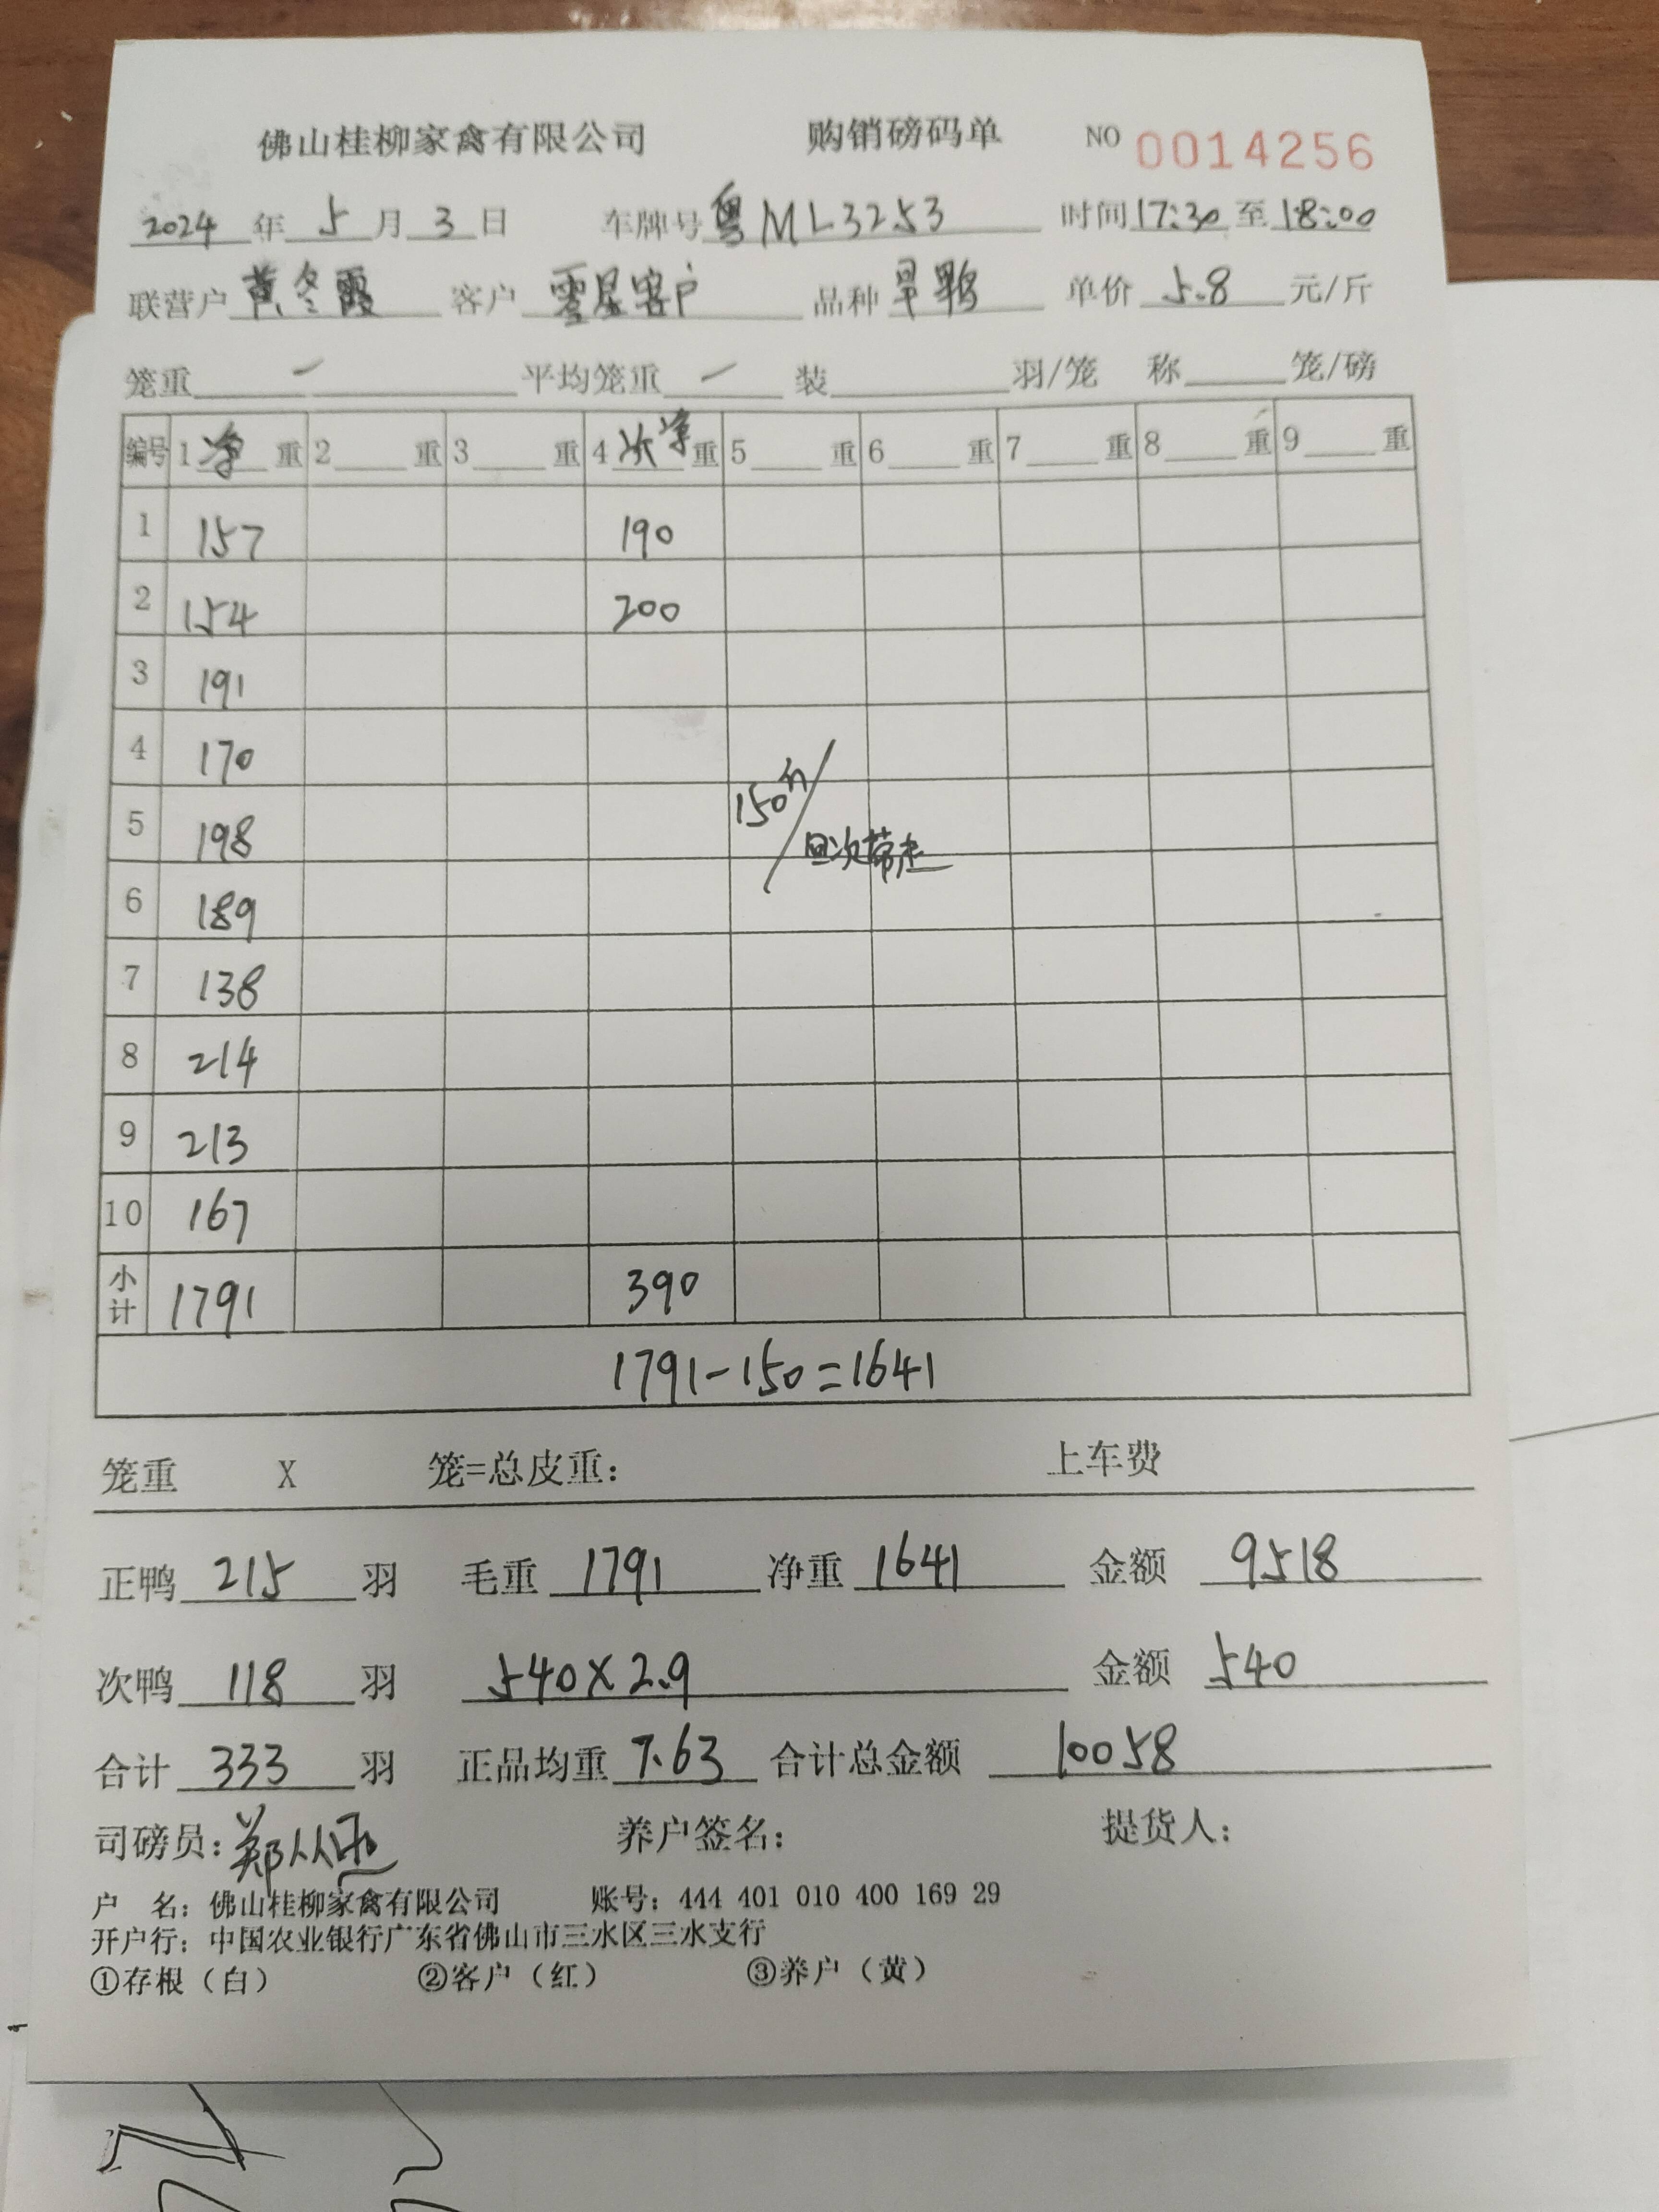 佛山桂柳家禽有限公司 购销磅码单 NO 0014256
2024年5月3日 车牌号粤ML3253 时间17:30至18:00
联营户黄冬霞 客户零星客户 品种旱鸭 单价5.8元/斤
笼重 — 平均笼重 — 装 羽/笼 称 笼/磅
编号 1净重 2 重 3 重 4次净重 5 重 6 重 7 重 8 重 9 重
1 157 190
2 154 200
3 191
4 170
5 198 150斤/
因次带走
6 189
7 138
8 214
9 213
10 167
小计 1791 390
1791-150=1641
笼重 X 笼=总皮重: 上车费
正鸭215羽 毛重1791 净重1641 金额9518
次鸭118羽 540×2.9 金额540
合计333羽 正品均重7.63 合计总金额10058
司磅员: 养户签名: 提货人:
户 名: 佛山桂柳家禽有限公司 账号: 444 401 010 400 169 29
开户行: 中国农业银行广东省佛山市三水区三水支行
①存根（白） ②客户（红） ③养户（黄）